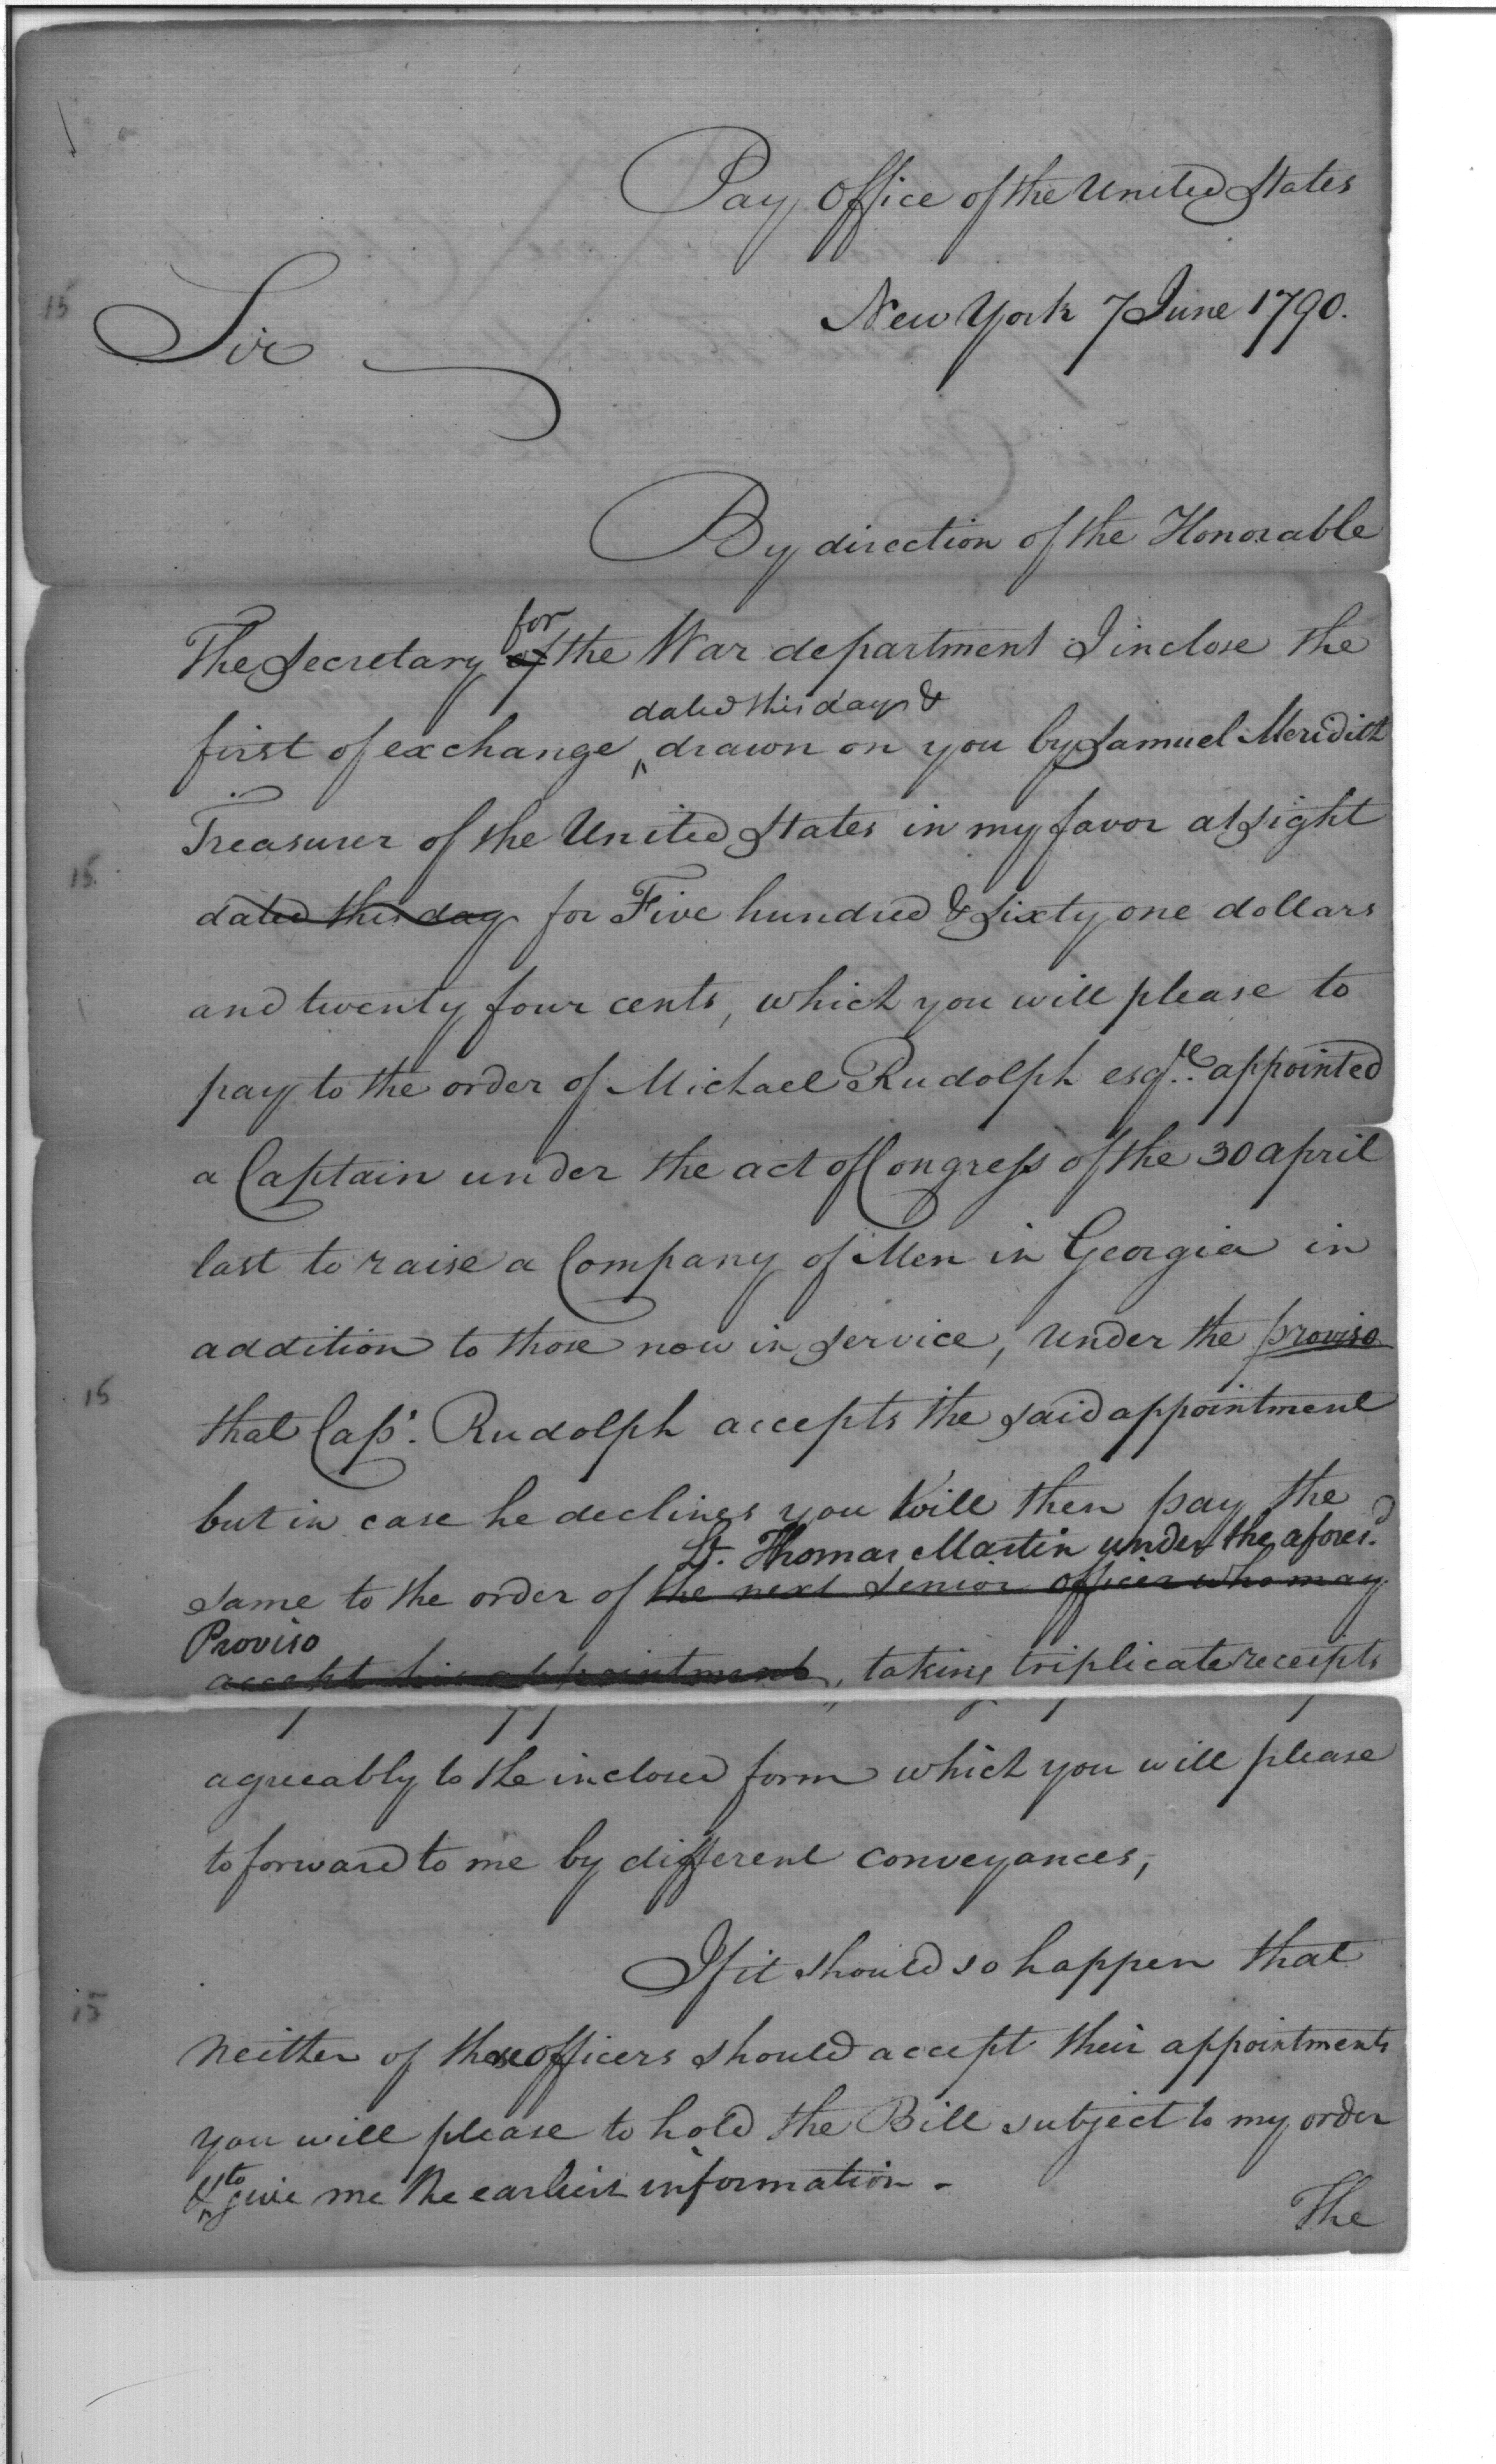 Pay Office of the United States
New York 7 June 1790.
15
Sir
By direction of the Honorable
for
The Secretary of the War department I inclose the
dated this day &
first of exchange ^ drawn on you by Samuel Meridith
Treasurer of the United States in my favor at sight
15.
dated this day for Five hundred & sixty one dollars
and twenty four cents, which you will please to
pay to the order of Michael Rudolph esqre. appointed
a Captain under the act of Congress of the 30 april
last to raise a Company of Men in Georgia in
addition to those now in service, under the proviso
15
that Capt. Rudolph accepts the said appointment
but in case he declines you will then pay the
Lt. Thomas Martin under the aforesd.
same to the order of the next senior officer who may
Proviso
accept his appointment, taking triplicate receipts
agreeably to the inclosed form which you will please
to forward to me by different conveyances,
If it should so happen that
15
neither of these officers should accept their appointments
you will please to hold the Bill subject to my order
to
& ^ give me the earliest information -
The